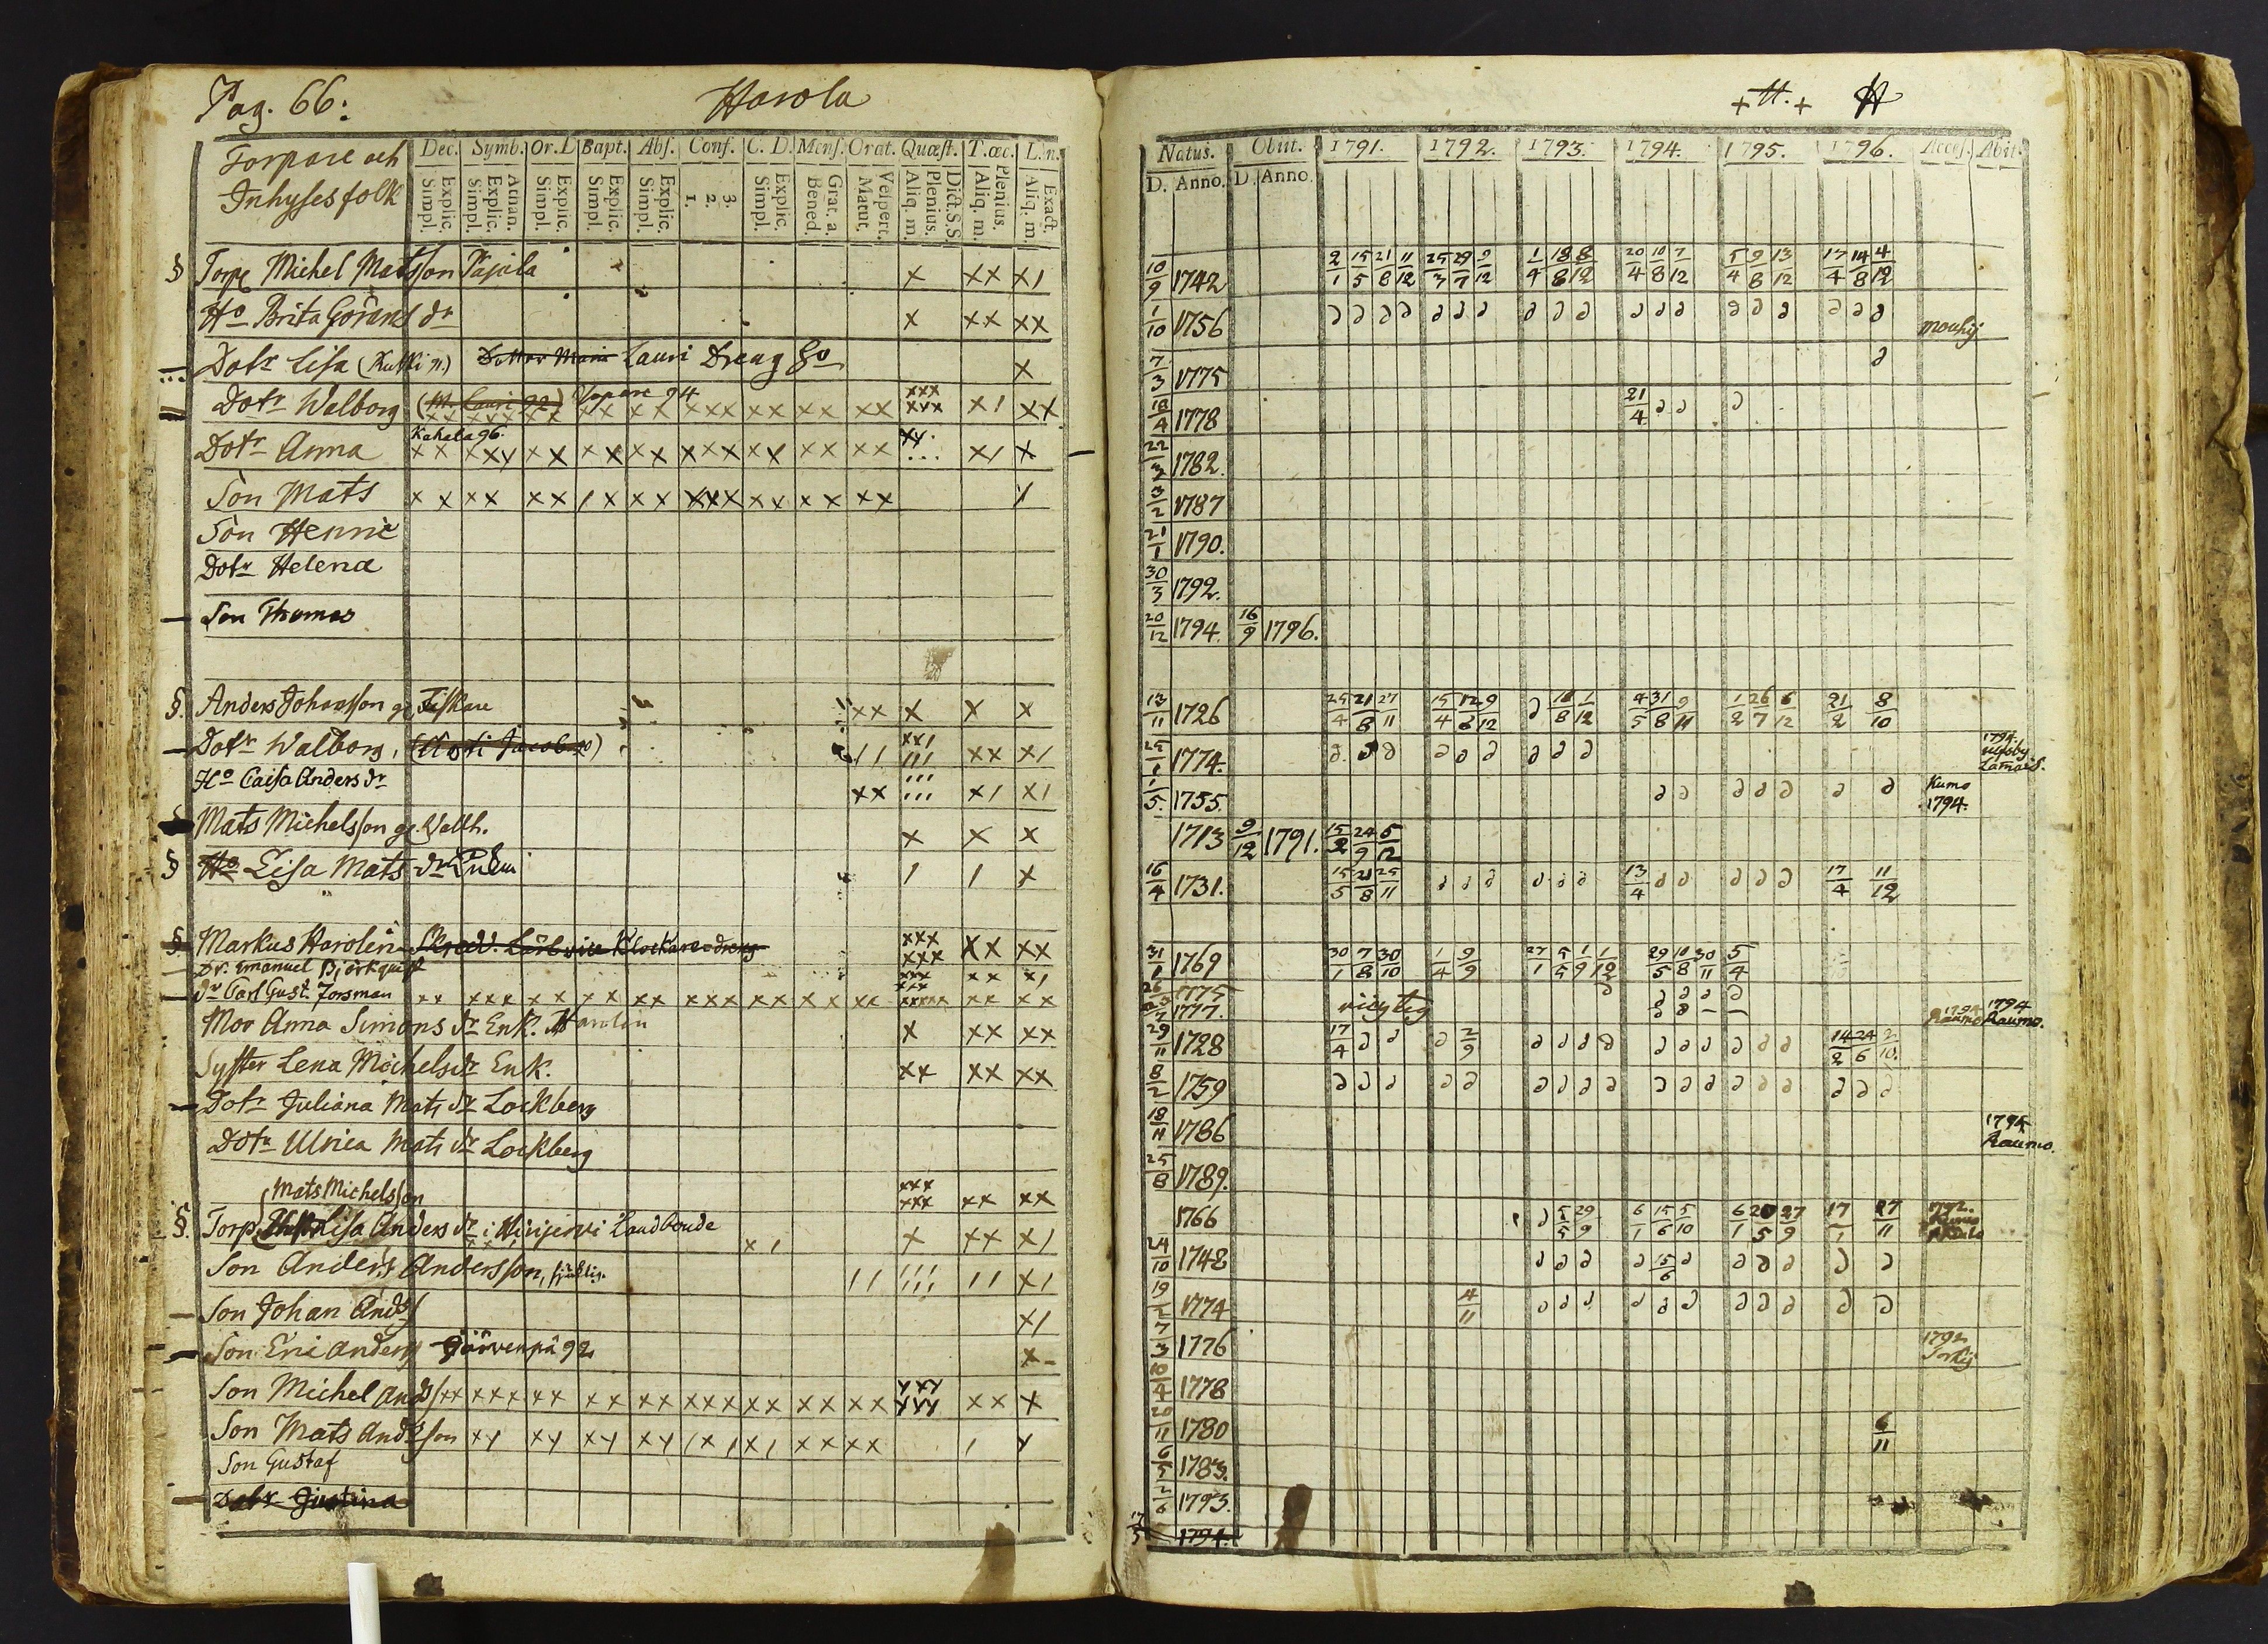 Pag. 66:
Harola
Torpare och
Inhyses folk
Dec. Symb. Or. D. Bapt. Abs. Conf. C. D. Mens. Orat. Quæst. T. œc. L. n.
Explic. Simpl. Athan. Explic. Simpl. Explic. Simpl. Explic. Simpl. Explic. Simpl. 3. 2. 1. Explic. Simpl. Grat. a. Bened. Vespert. Matut. Dict. S.S. Plenius. Aliq. m. Plenius. Aliq. m. Exact. Aliq. m.
§ Torp. Michel Matsson Pajala x xx x/
Ho Brita Görans dr x xx xx
Dotr Lisa Lauri Dreng x
Dotr Walborg xx xxx xx xx xx xxx xx xx xx xxx xxx x/ xx
Kahala 96.
Dotr Anna xx xxy xx xx xx xxx xx xx xx x/ x
Son Mats xx xx xx /x xx xxx xx xx xx /
Son Henric
Dotr Helena
Son Thomas
§. Anders Johansson Fiskare xx x x x
Dotr Walborg, // xx/ /// xx x/
Ho Caisa Anders dr xx /// x/ x/
Mats Michelsson x x x
§ Ho Lisa Mats dr / / x
§. Markus Harolin Klockaredreng xxx xxx xx xx
Dr. Emanuel Björkquist xx x/
dr Carl Gust. Forsman xx xxx xx xx xx xxx xx xx xx xxxxx xx xx
Mor Anna Simons dr Enk. Harolin x xx xx
Syster Lena Michels dr Enk. xx xx xx
Dotr Juliana Mats dr Lockberg
Dotr Ulrica Mats dr Lockberg
Mats Michelsson xxx xxx xx xx
§. Torp. Lisa Anders dr i Landbonde x/ x xx x/
Son Anders Andersson, // /// /// // x/
Son Johan Ands x/
Son Eric Anders Järvenpä 92 x-
Son Michel Ands xx xxx xx xx xx xxx xx xx xx xx x
Son Mats Andsson xy xy xy xy /x/ x/ xx xx / y
Son Gustaf
Dotr Justina
+ H. + H
Natus. Obiit. 1791. 1792. 1793. 1794. 1795. 1796. Access. Abiit.
D. Anno. D. Anno.
10/9 1742 2/1 15/5 21/8 11/12 25/3 29/7 9/12 1/4 18/8 8/12 20/4 10/8 7/12 5/4 9/8 13/12 17/4 14/8 4/12
1/10 1756
7/3 1775
18/4 1778 21/4
22/3 1782.
3/2 1787
21/1 1790.
30/3 1792.
20/12 1794. 16/9 1796.
13/11 1726 25/4 21/8 27/11 15/4 12/6 9/12 18/8 1/12 4/5 31/8 9/11 1/2 26/7 6/12 21/2 8/10
1774. 1794.
1/5. 1755. Kumo
1794.
1713 9/12 1791. 15/2 24/9 5/12
16/4 1731. 15/5 21/8 25/11 13/4 17/4 11/12
31/1 1769 30/1 7/8 30/10 1/4 9/9 27/1 5/5 1/9 1/12 29/5 10/8 30/11 5/4
26 1775
1777. 1794
Raumo.
29/11 1728 17/4 2/9 14/2 24/6 2/10
8/2 1759
18/11 1786 1794
Raumo.
25/8 1789.
1766 5/5 29/9 6/1 15/6 5/10 6/1 20/5 27/9 17/1 27/11 1792.
24/10 1748 15/6
19/2 1774 4/11
7/3 1776 1792
10/4 1778
20/11 1780 6/11
6/5 1783.
2/6 1793.
17/5 1794.